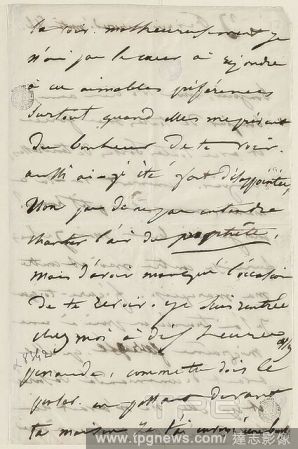 la voir. malheureusement je
n'ai pas le cœur à répondre
à ces aimables préférences
surtout quand elles me privent
du bonheur de te voir.
aussi ai-je été fort désappointée,
Non pas de ne pas entendre
chanter l'air du prophète,
mais d'avoir manqué l'occasion
de te revoir. je suis rentrée
chez moi à dix heures
comme
le
en passant devant
ta maison je t'ai envoyé
8342
TPG
www.tpgnews.com/ 達志影像